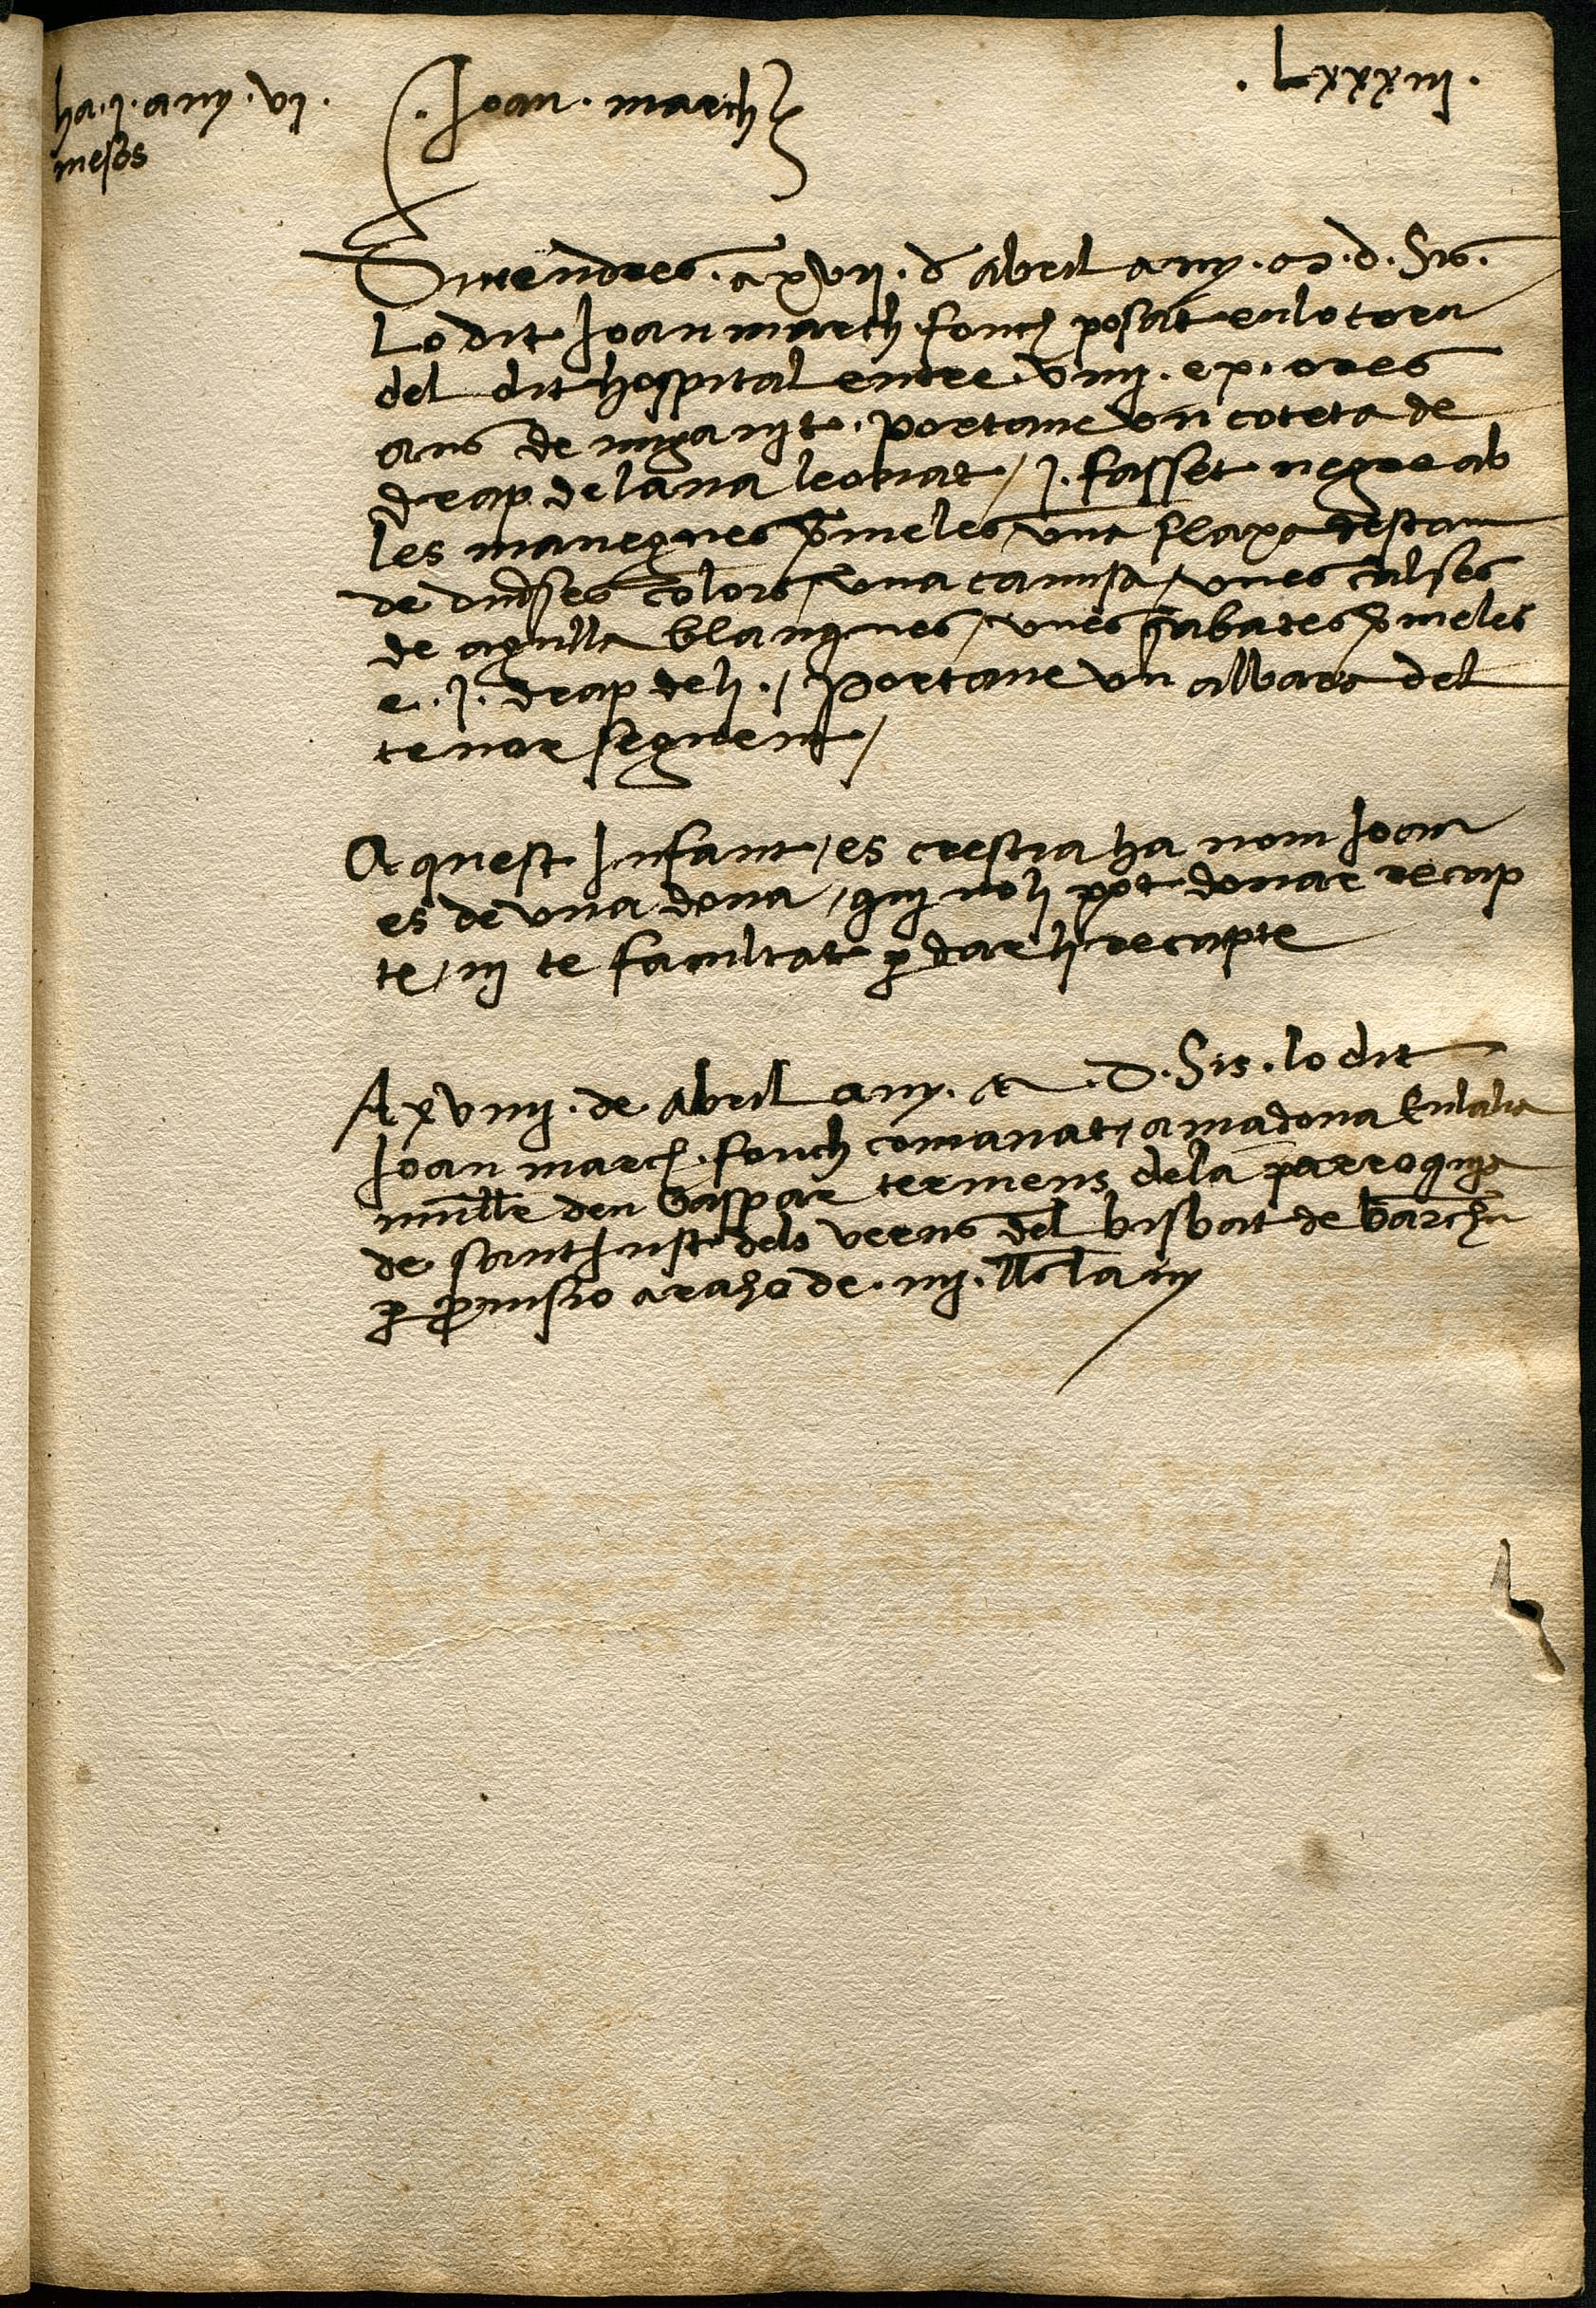 ha .j. any .vj.
mesos
. Joan . march
. Lxxxxiij .
Divendres . a xvij . d abril any . M . d . Sis .
Lo dit Joan march . fonch posat en lo torn
del dit hospital entre . viiij . e x . ores
ans de mija nyt . portave un coteta de
drap de lana leonat / j . fasset negre ab
les manegues vmeles / una flaxa destam
de divses colors / una camisa / unes calses
de agulla blanques / unes sabates vmeles
e . j . drap de li . / Portave un albara del
tenor seguent /
Aquest Infant / es crestia ha nom Joan
es de una dona / quj no lj pot donar recap
te / nj te facultat p dar lj recapte
A xviiij . de abril any . M . D . Sis . lo dit
Joan march . fonch comanat / a madona Eulalia
mulle den Gaspar termens de la parroquja
de sant Just dels verns del bisbat de barchn
p pmisio a raho de . iiij . ll lany